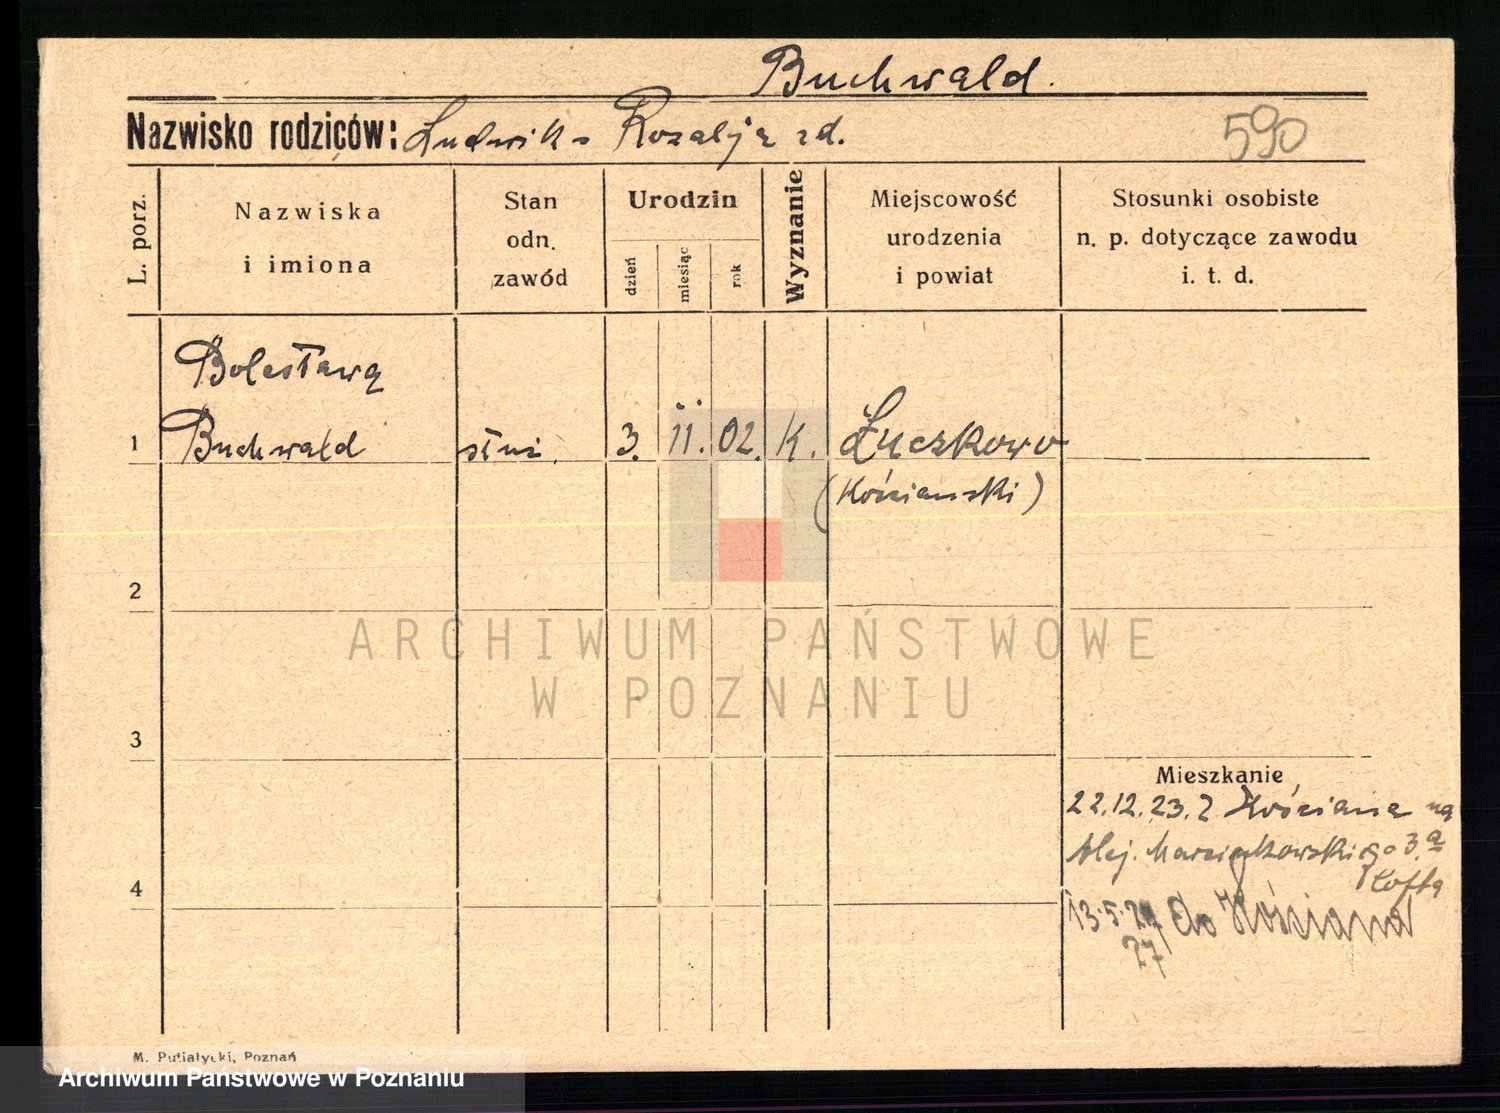 Buchwald.
Nazwisko rodziców: Ludwik - Rozalja zd.
590
L. porz.
Nazwiska
i imiona
Stan
odn.
zawód
Urodzin
dzień
miesiąc
rok
Wyznanie
Miejscowość
urodzenia
i powiat
Stosunki osobiste
n. p. dotyczące zawodu
i. t. d.
Bolesława
1 Buchwald służ. 3. 11. 02. K. Łuczkowo
(Kościański)
2
3
4
Mieszkanie
22.12.23. z Kościana na
Alej. Marcinkowskiego 3.a
13.5.24 do Kościana
27
M. Putiatycki, Poznań
ARCHIWUM PAŃSTWOWE
W POZNANIU
Archiwum Państwowe w Poznaniu